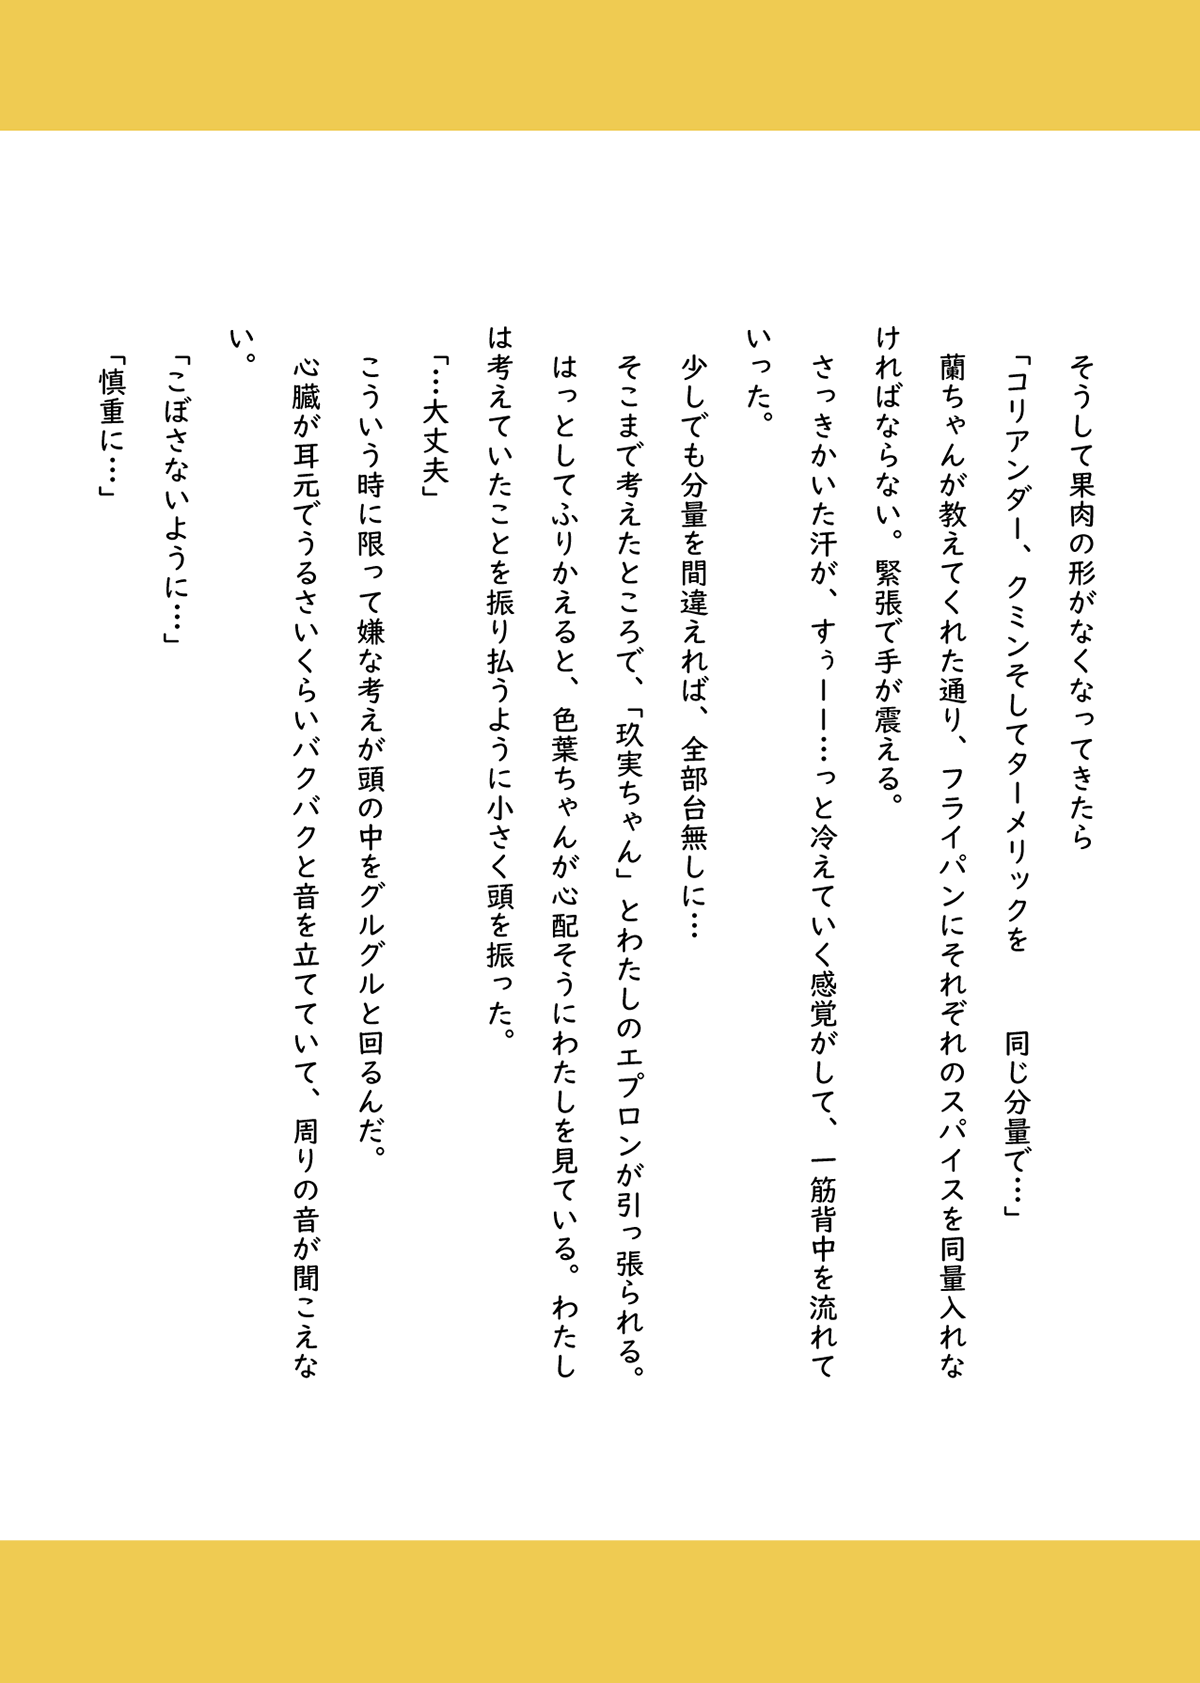 そうして果肉の形がなくなってきたら
「コリアンダー、クミンそしてターメリックを　　同じ分量で…」
蘭ちゃんが教えてくれた通り、フライパンにそれぞれのスパイスを同量入れな
ければならない。緊張で手が震える。
さっきかいた汗が、すぅーー…っと冷えていく感覚がして、一筋背中を流れて
いった。
少しでも分量を間違えれば、全部台無しに…
そこまで考えたところで、「玖実ちゃん」とわたしのエプロンが引っ張られる。
はっとしてふりかえると、色葉ちゃんが心配そうにわたしを見ている。わたし
は考えていたことを振り払うように小さく頭を振った。
「…大丈夫」
こういう時に限って嫌な考えが頭の中をグルグルと回るんだ。
心臓が耳元でうるさいくらいバクバクと音を立てていて、周りの音が聞こえな
い。
「こぼさないように…」
「慎重に…」